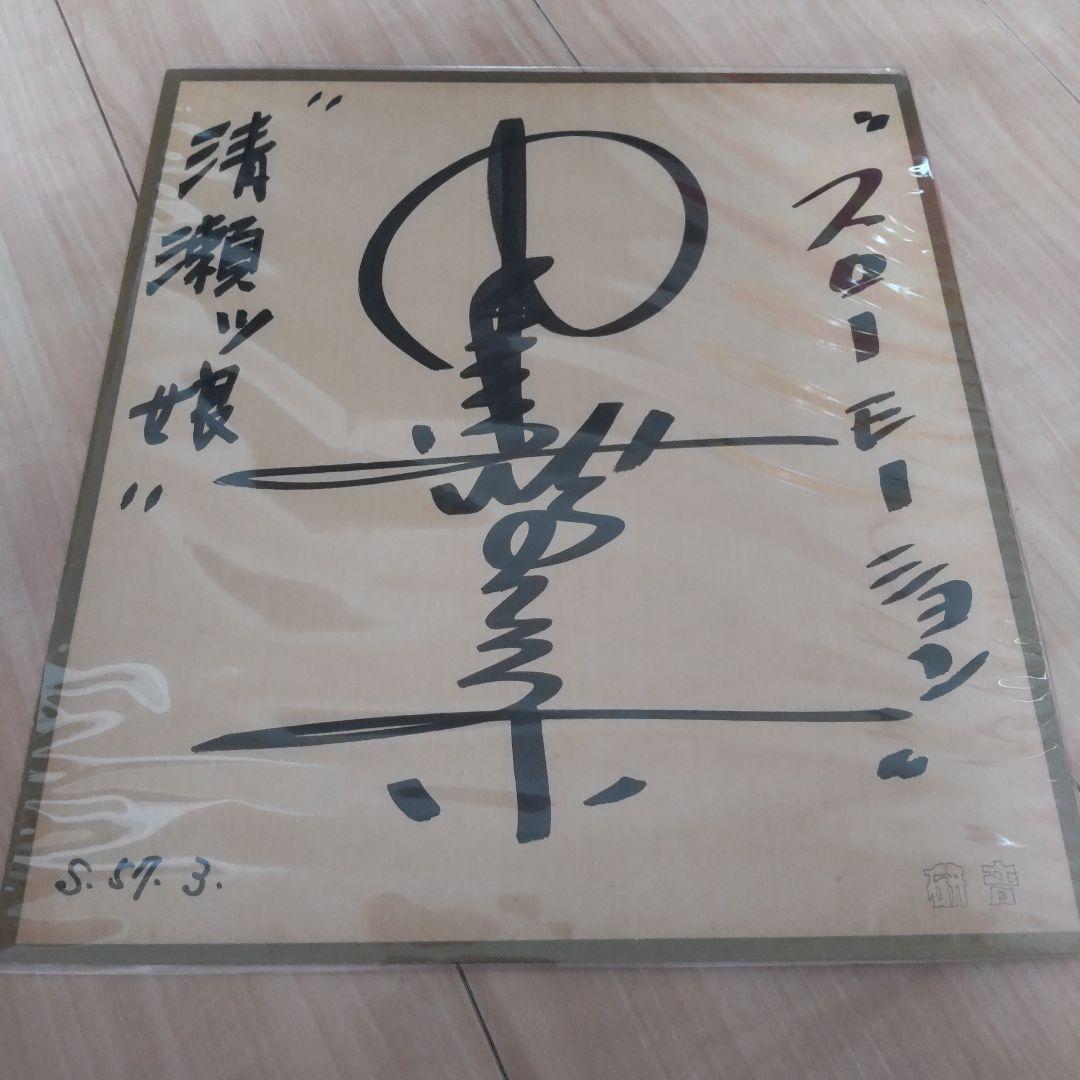 "スローモーション"
"清瀬ッ娘"
S.57.3.
研音